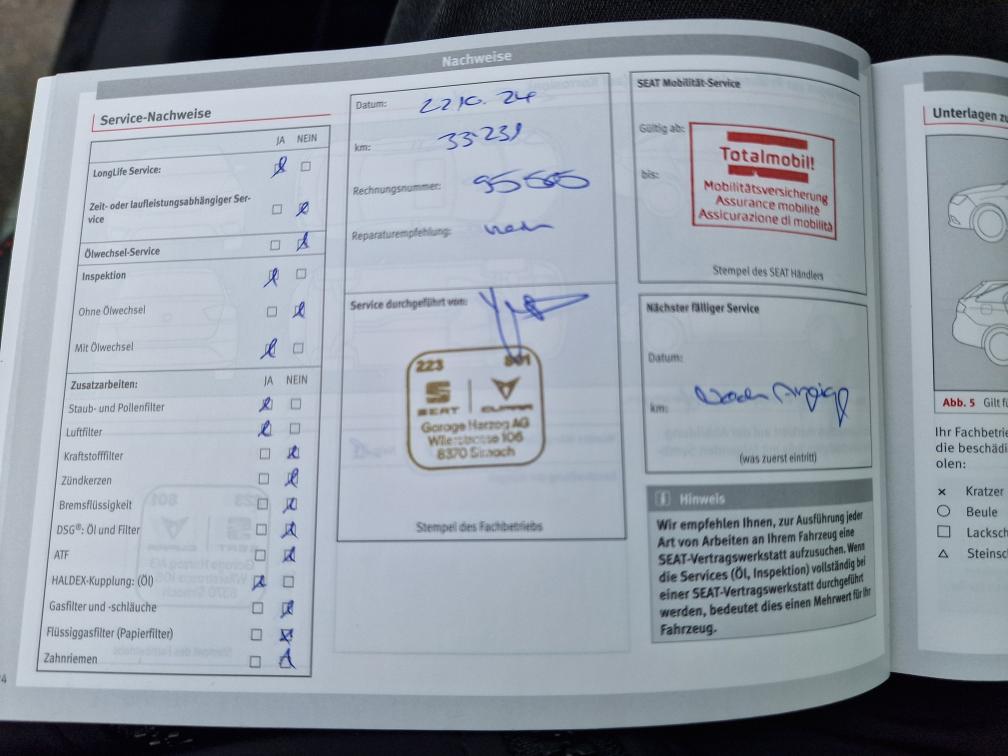 Nachweise
Service-Nachweise
JA NEIN
LongLife Service:
Zeit- oder laufleistungsabhängiger Ser-
vice
Ölwechsel-Service
Inspektion
Ohne Ölwechsel
Mit Ölwechsel
Zusatzarbeiten: JA NEIN
Staub- und Pollenfilter
Luftfilter
Kraftstofffilter
Zündkerzen
Bremsflüssigkeit
DSG®: Öl und Filter
ATF
HALDEX-Kupplung: (Öl)
Gasfilter und -schläuche
Flüssiggasfilter (Papierfilter)
Zahnriemen
Datum: 22 10. 24
km: 33.231
Rechnungsnummer:
Reparaturempfehlung:
Service durchgeführt von:
223 801
SEAT CUPRA
Garage Herzog AG
Wilerstrasse 106
8370 Sirnach
Stempel des Fachbetriebs
SEAT Mobilität-Service
Gültig ab:
bis:
Totalmobil!
Mobilitätsversicherung
Assurance mobilité
Assicurazione di mobilità
Stempel des SEAT Händlers
Nächster fälliger Service
Datum:
km: Nach Anzeige
(was zuerst eintritt)
Hinweis
Wir empfehlen Ihnen, zur Ausführung jeder
Art von Arbeiten an Ihrem Fahrzeug eine
SEAT-Vertragswerkstatt aufzusuchen. Wenn
die Services (Öl, Inspektion) vollständig bei
einer SEAT-Vertragswerkstatt durchgeführt
werden, bedeutet dies einen Mehrwert für Ihr
Fahrzeug.
Unterlagen
Abb. 5 Gilt
Ihr
die
olen:
Kratzer
Beule